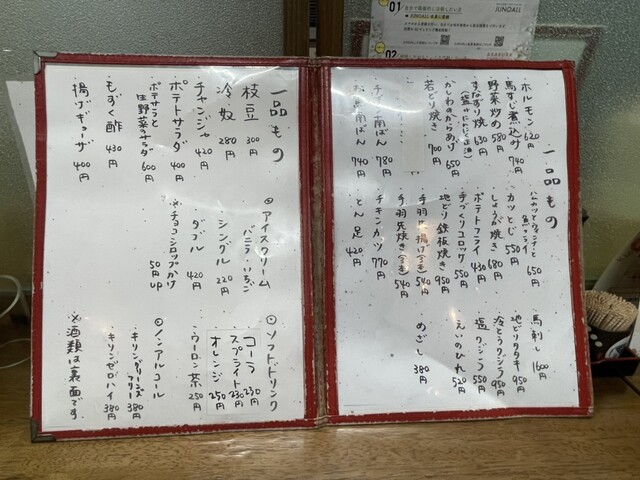 一品もの
ホルモン 620円
馬すじ煮込み 740円
野菜炒め 580円
すなずり焼 630円
(塩・にんにく正油)
かしわのからあげ 650円
若どり焼き 700円
チキン南ばん 780円
南ばん 740円
ハムカツとウインナーと魚フライ 650円
カツとじ 550円
しょうが焼き 680円
ポテトフライ 430円
手づくりコロッケ 550円
地どり鉄板焼き 950円
手羽先揚げ(3本) 540円
手羽先焼き(3本) 540円
チキンカツ 770円
とん足 420円
馬刺し 1600円
地どりタタキ 950円
冷とうクジラ 950円
塩クジラ 550円
えいのひれ 520円
めざし 380円
一品もの
枝豆 300円
冷奴 280円
チャンジャ 420円
ポテトサラダ 400円
ポテサラと生野菜のサラダ 600円
もずく酢 430円
揚げギョーザ 400円
◎アイスクリーム
バニラ・いちご
シングル 220円
ダブル 420円
※チョコシロップかけ 50円up
◎ソフトドリンク
コーラ 230円
スプライト 230円
オレンジ 250円
・ウーロン茶 250円
◎ノンアルコール
・キリングリーンズフリー 380円
・キリンゼロハイ 380円
※酒類は裏面です。
01
JUNOALL
02